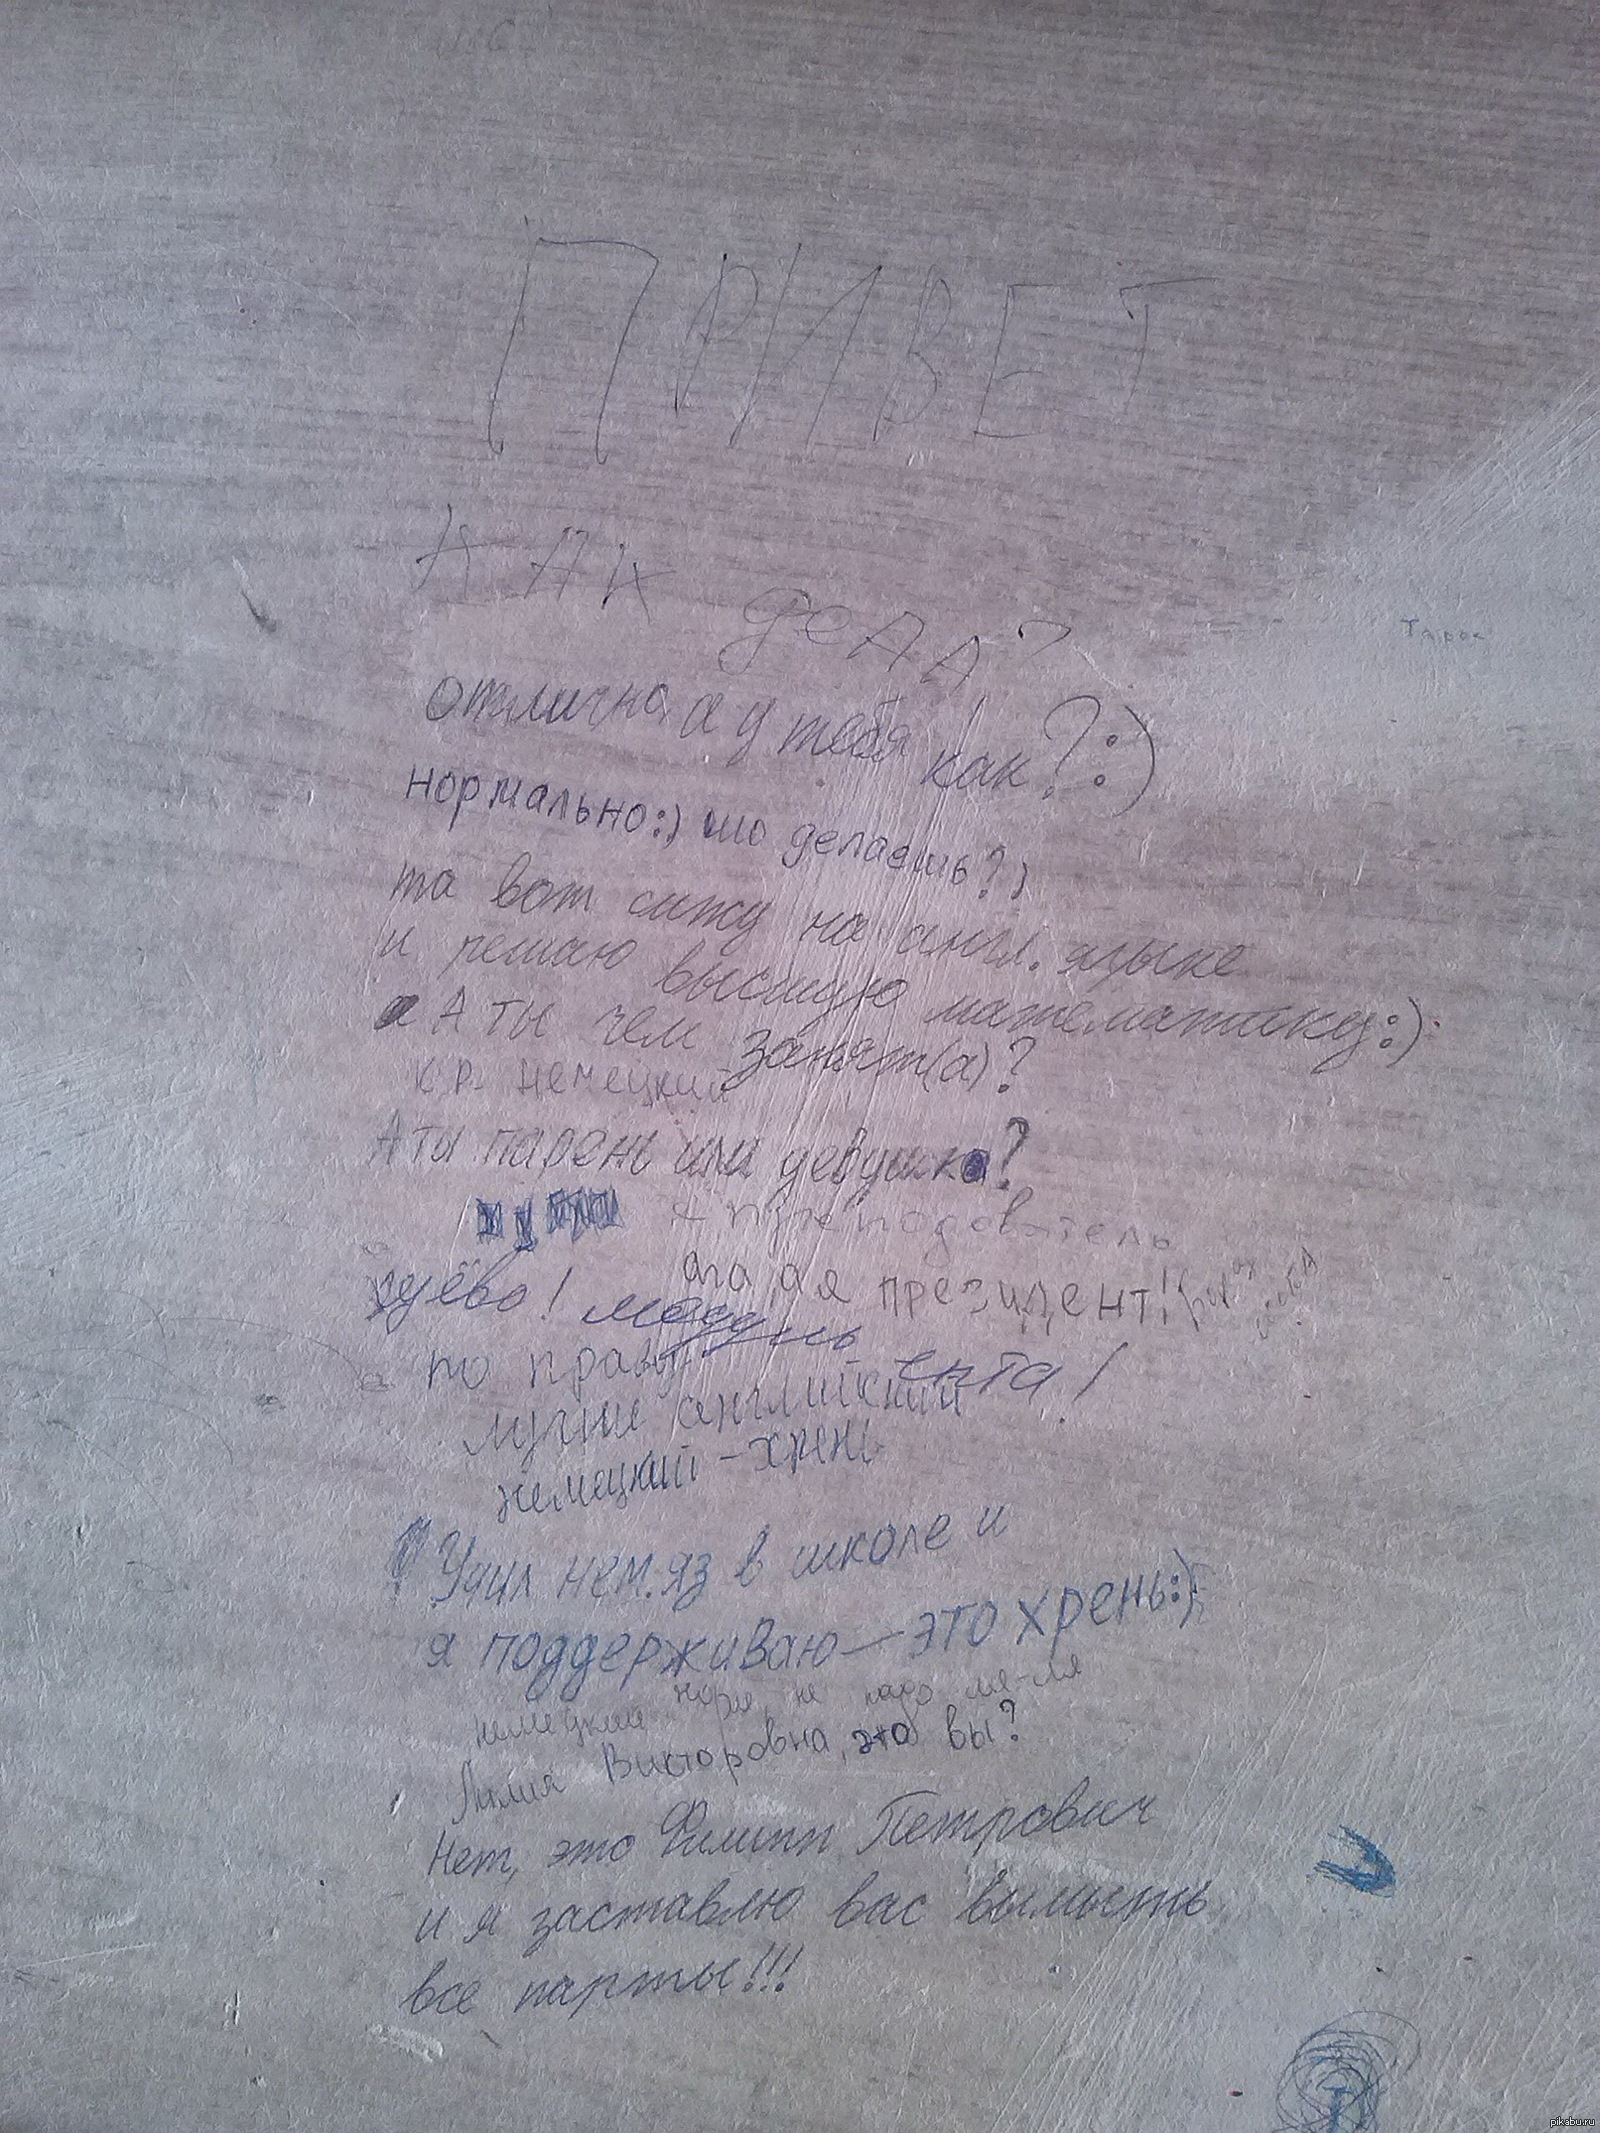 ПРИВЕТ
КАК
дела?
Тарас
отлична, а у тебя как?:)
нормально:) шо делаешь?)
та вот сижу на англ. языке
и решаю высшую математику:)
А ты чем занят(а)?
К.р. немецкий
А ты парень или девушка?
я преподователь
ага, а я президент!
хуёво! модуль
по праву
ента!
лучше английский
немецкий - хрень
Учил нем.яз в школе и
я поддерживаю — это хрень:)
немецкий норм, не надо ля-ля
Лилия Викторовна, это вы?
Нет, это Филипп Петрович
и я заставлю вас вымыть
все парты!!!
pikabu.ru